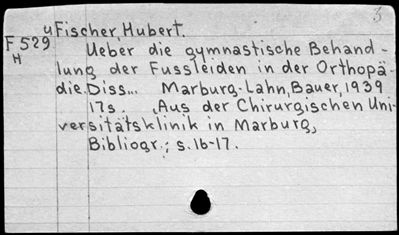 3
u Fischer, Hubert.
F 529
H
Ueber die gymnastische Behand-
lung der Fussleiden in der Orthopä-
die. Diss... Marburg-Lahn, Bauer, 1939
17s. Aus der Chirurgischen Uni-
versitätsklinik in Marburg,
Bibliogr.; s.16-17.